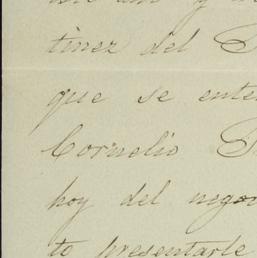 tinez del
que se ente
Cornelio
hoy del nego
to presentarle